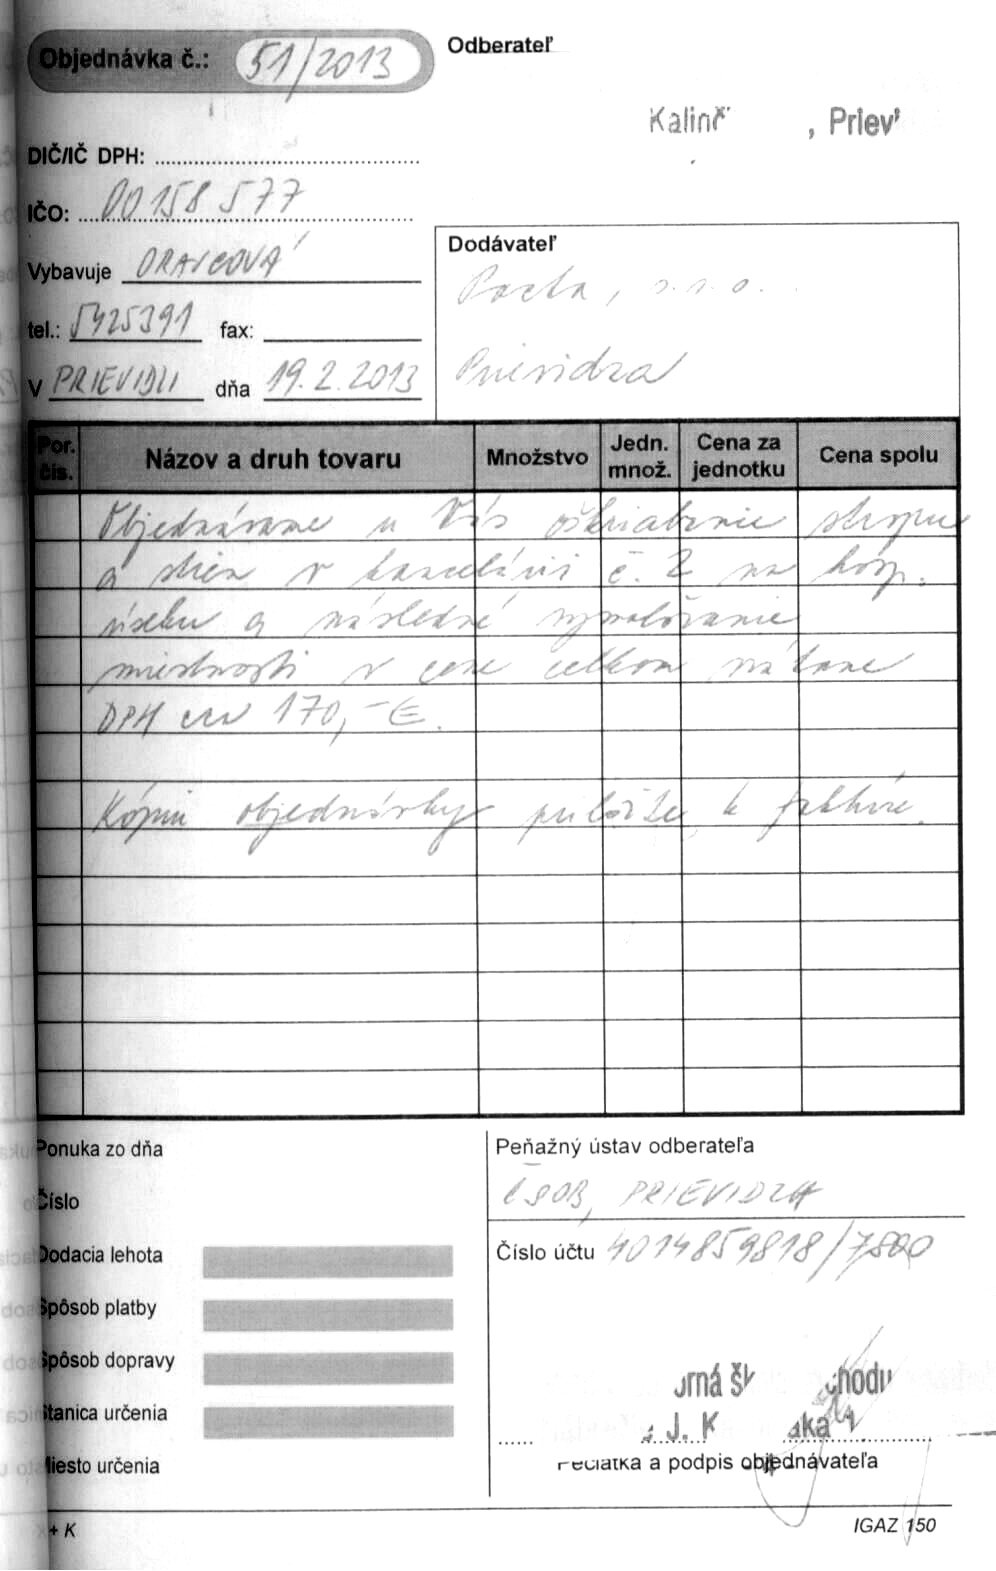 Objednávka č.: 51/2013
Odberateľ
Kalinč , Priev
DIČ/IČ DPH:
IČO: 00158577
Vybavuje ORAVCOVÁ
tel.: 5425391 fax:
V PRIEVIDZI dňa 19.2.2013
Dodávateľ
s.r.o.
Prievidza
Por. čís.
Názov a druh tovaru
Množstvo
Jedn. množ.
Cena za jednotku
Cena spolu
Objednávame u Vás oškriabanie stropu
a stien v kancelárii č. 2 na hosp.
úseku a následné vymaľovanie
miestnosti v cene celkom vrátane
DPH cca 170,-€.
Kópiu objednávky priložte k faktúre.
Ponuka zo dňa
Číslo
Dodacia lehota
Spôsob platby
Spôsob dopravy
Stanica určenia
Miesto určenia
Peňažný ústav odberateľa
ČSOB, PRIEVIDZA
Číslo účtu 4014859818/7500
orná šk chodu
J. K aka 1
Pečiatka a podpis objednávateľa
+ K
IGAZ 150